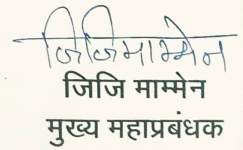 जिजिमाम्मेन
जिजि माम्मेन
मुख्य महाप्रबंधक